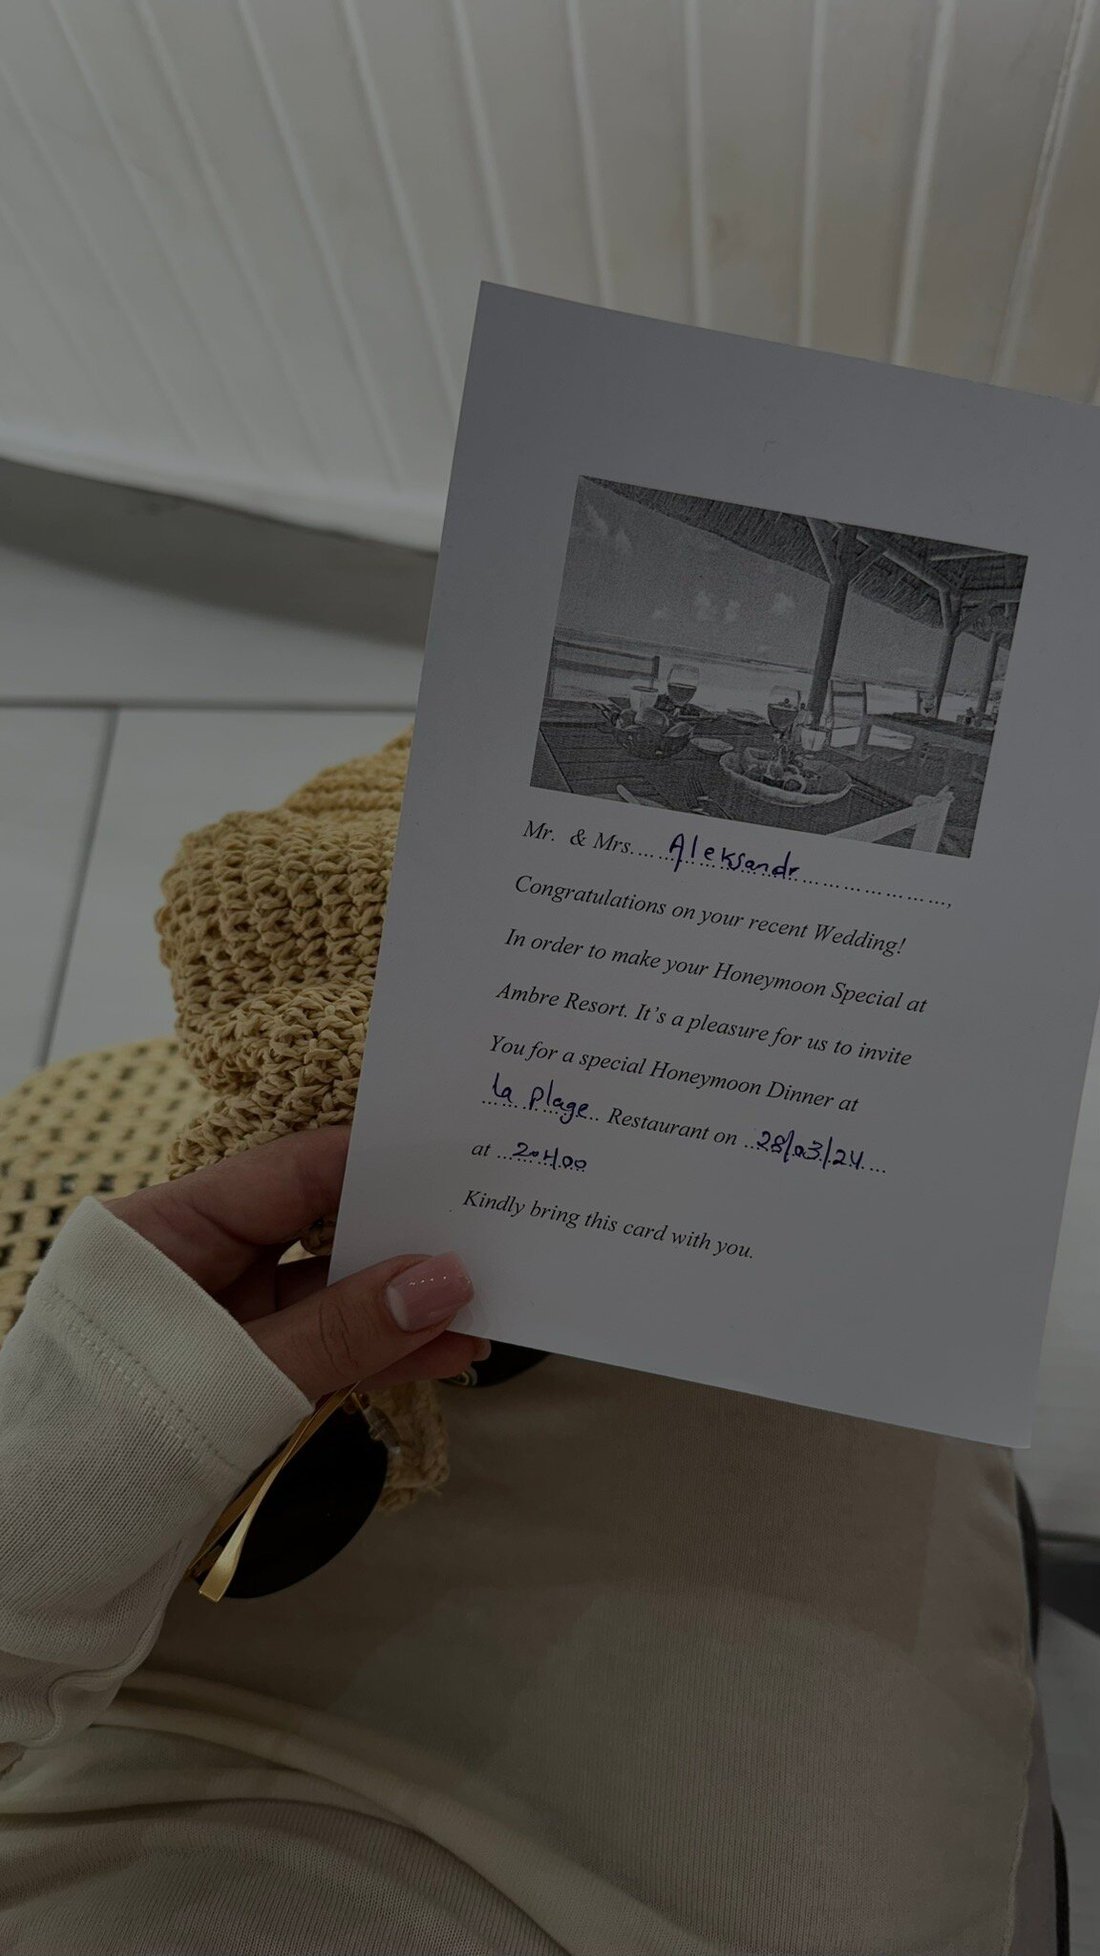 Mr. & Mrs.... Aleksandr ..................,
Congratulations on your recent Wedding!
In order to make your Honeymoon Special at
Ambre Resort. It's a pleasure for us to invite
You for a special Honeymoon Dinner at
la plage.. Restaurant on ..28/03/24....
at ...20H00
Kindly bring this card with you.